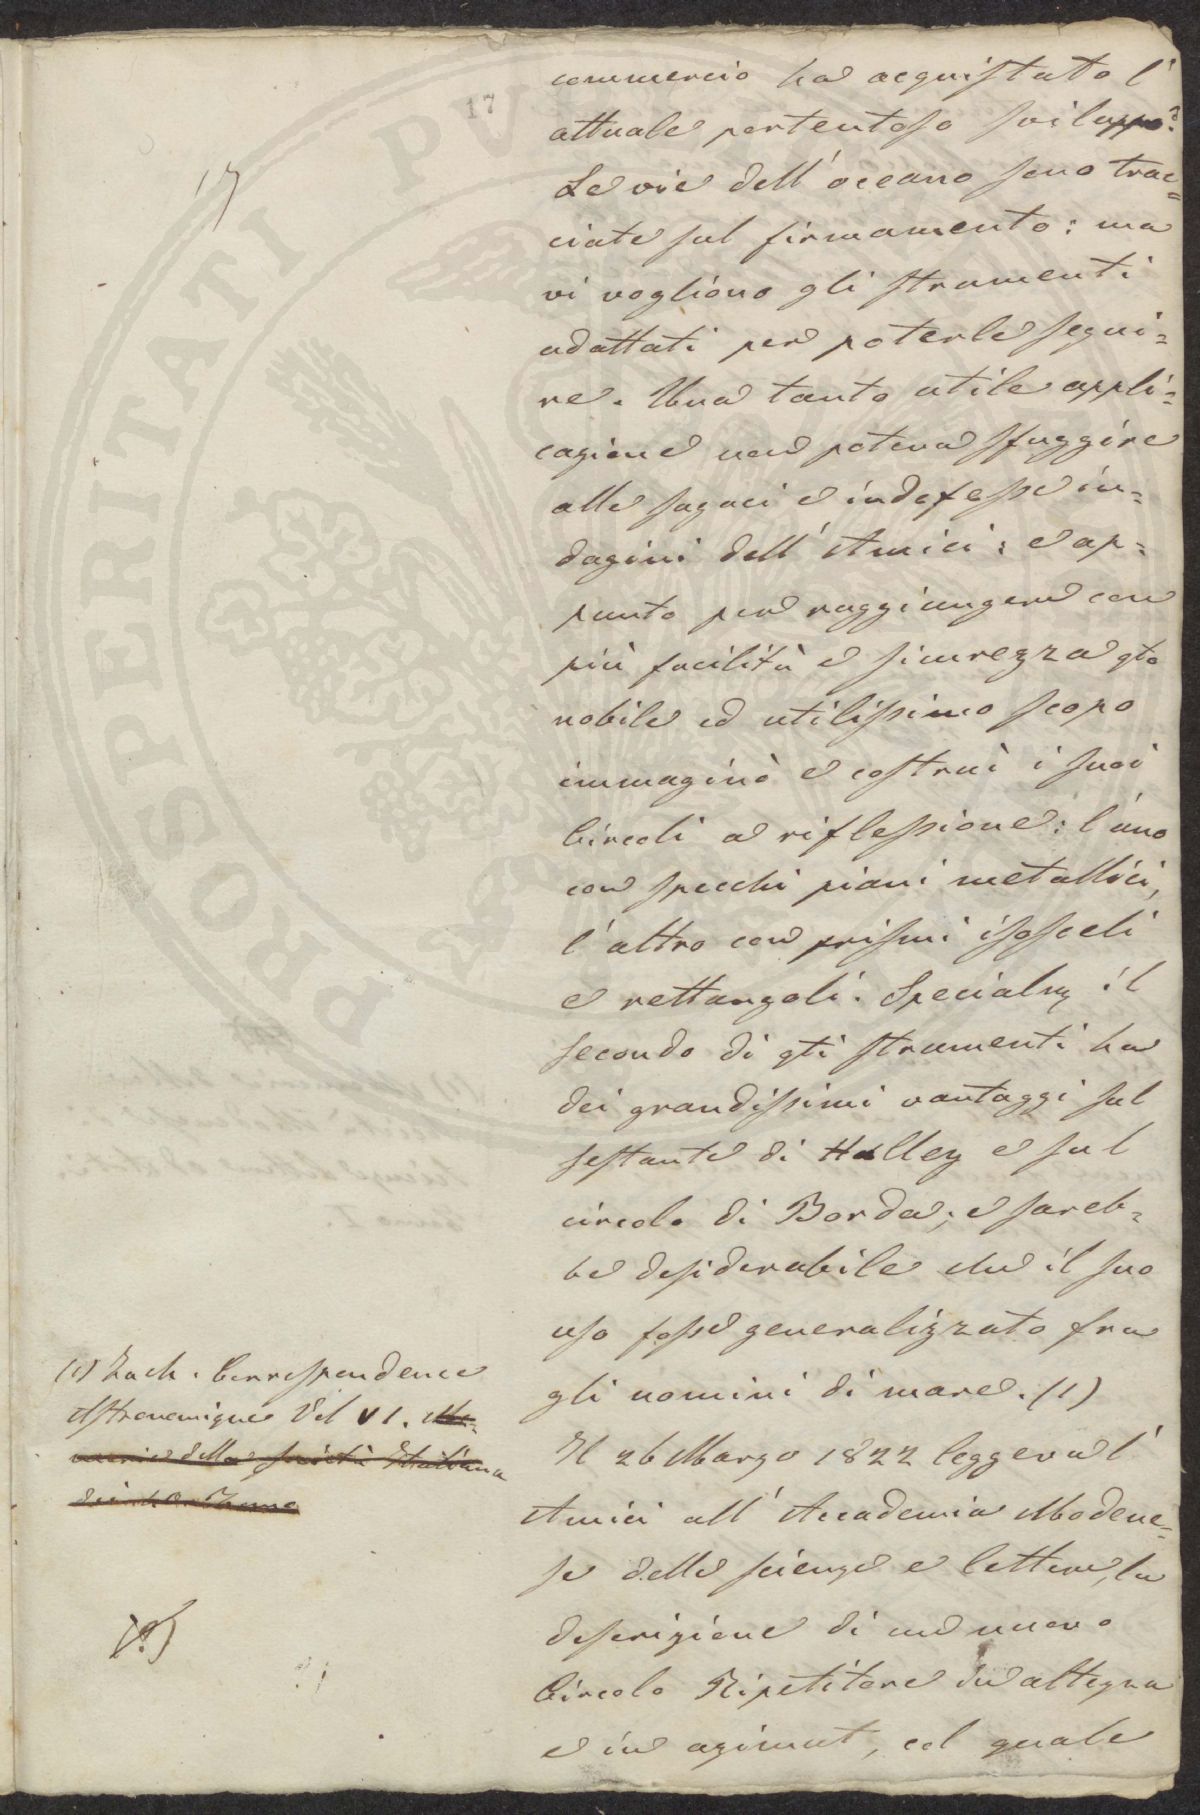 17
17
commercio ha acquistato l'
attuale portentoso sviluppo?
Le vie dell'oceano sono trac=
ciate sul firmamento: ma
vi vogliono gli strumenti
adattati per poterle segui=
re. Una tanto utile appli=
cazione non poteva sfuggire
alle sagaci e indefesse in=
dagini dell'Amici: e ap=
punto per raggiungere con
più facilità e sicurezza qto
nobile ed utilissimo scopo
immaginò e costruì i suoi
Circoli a riflessione: l'uno
con specchi piani metallici,
l'altro con prismi isosceli
e rettangoli. Specialm il
secondo di qti strumenti ha
dei grandissimi vantaggi sul
sestante di Halley e sul
circolo di Borda; e sareb=
be desiderabile che il suo
uso fosse generalizzato fra
gli uomini di mare. (1)
Il 26 Marzo 1822 leggeva l'
Amici all'Accademia Modene=
se delle scienze e lettere, la
descrizione di un nuovo
Circolo Ripetitore in altezza
e in azimut, col quale
(1) Zach. Correspondence
Astronomique Vol VI. Me=
morie della Società Italiana
PROSPERITATI PV